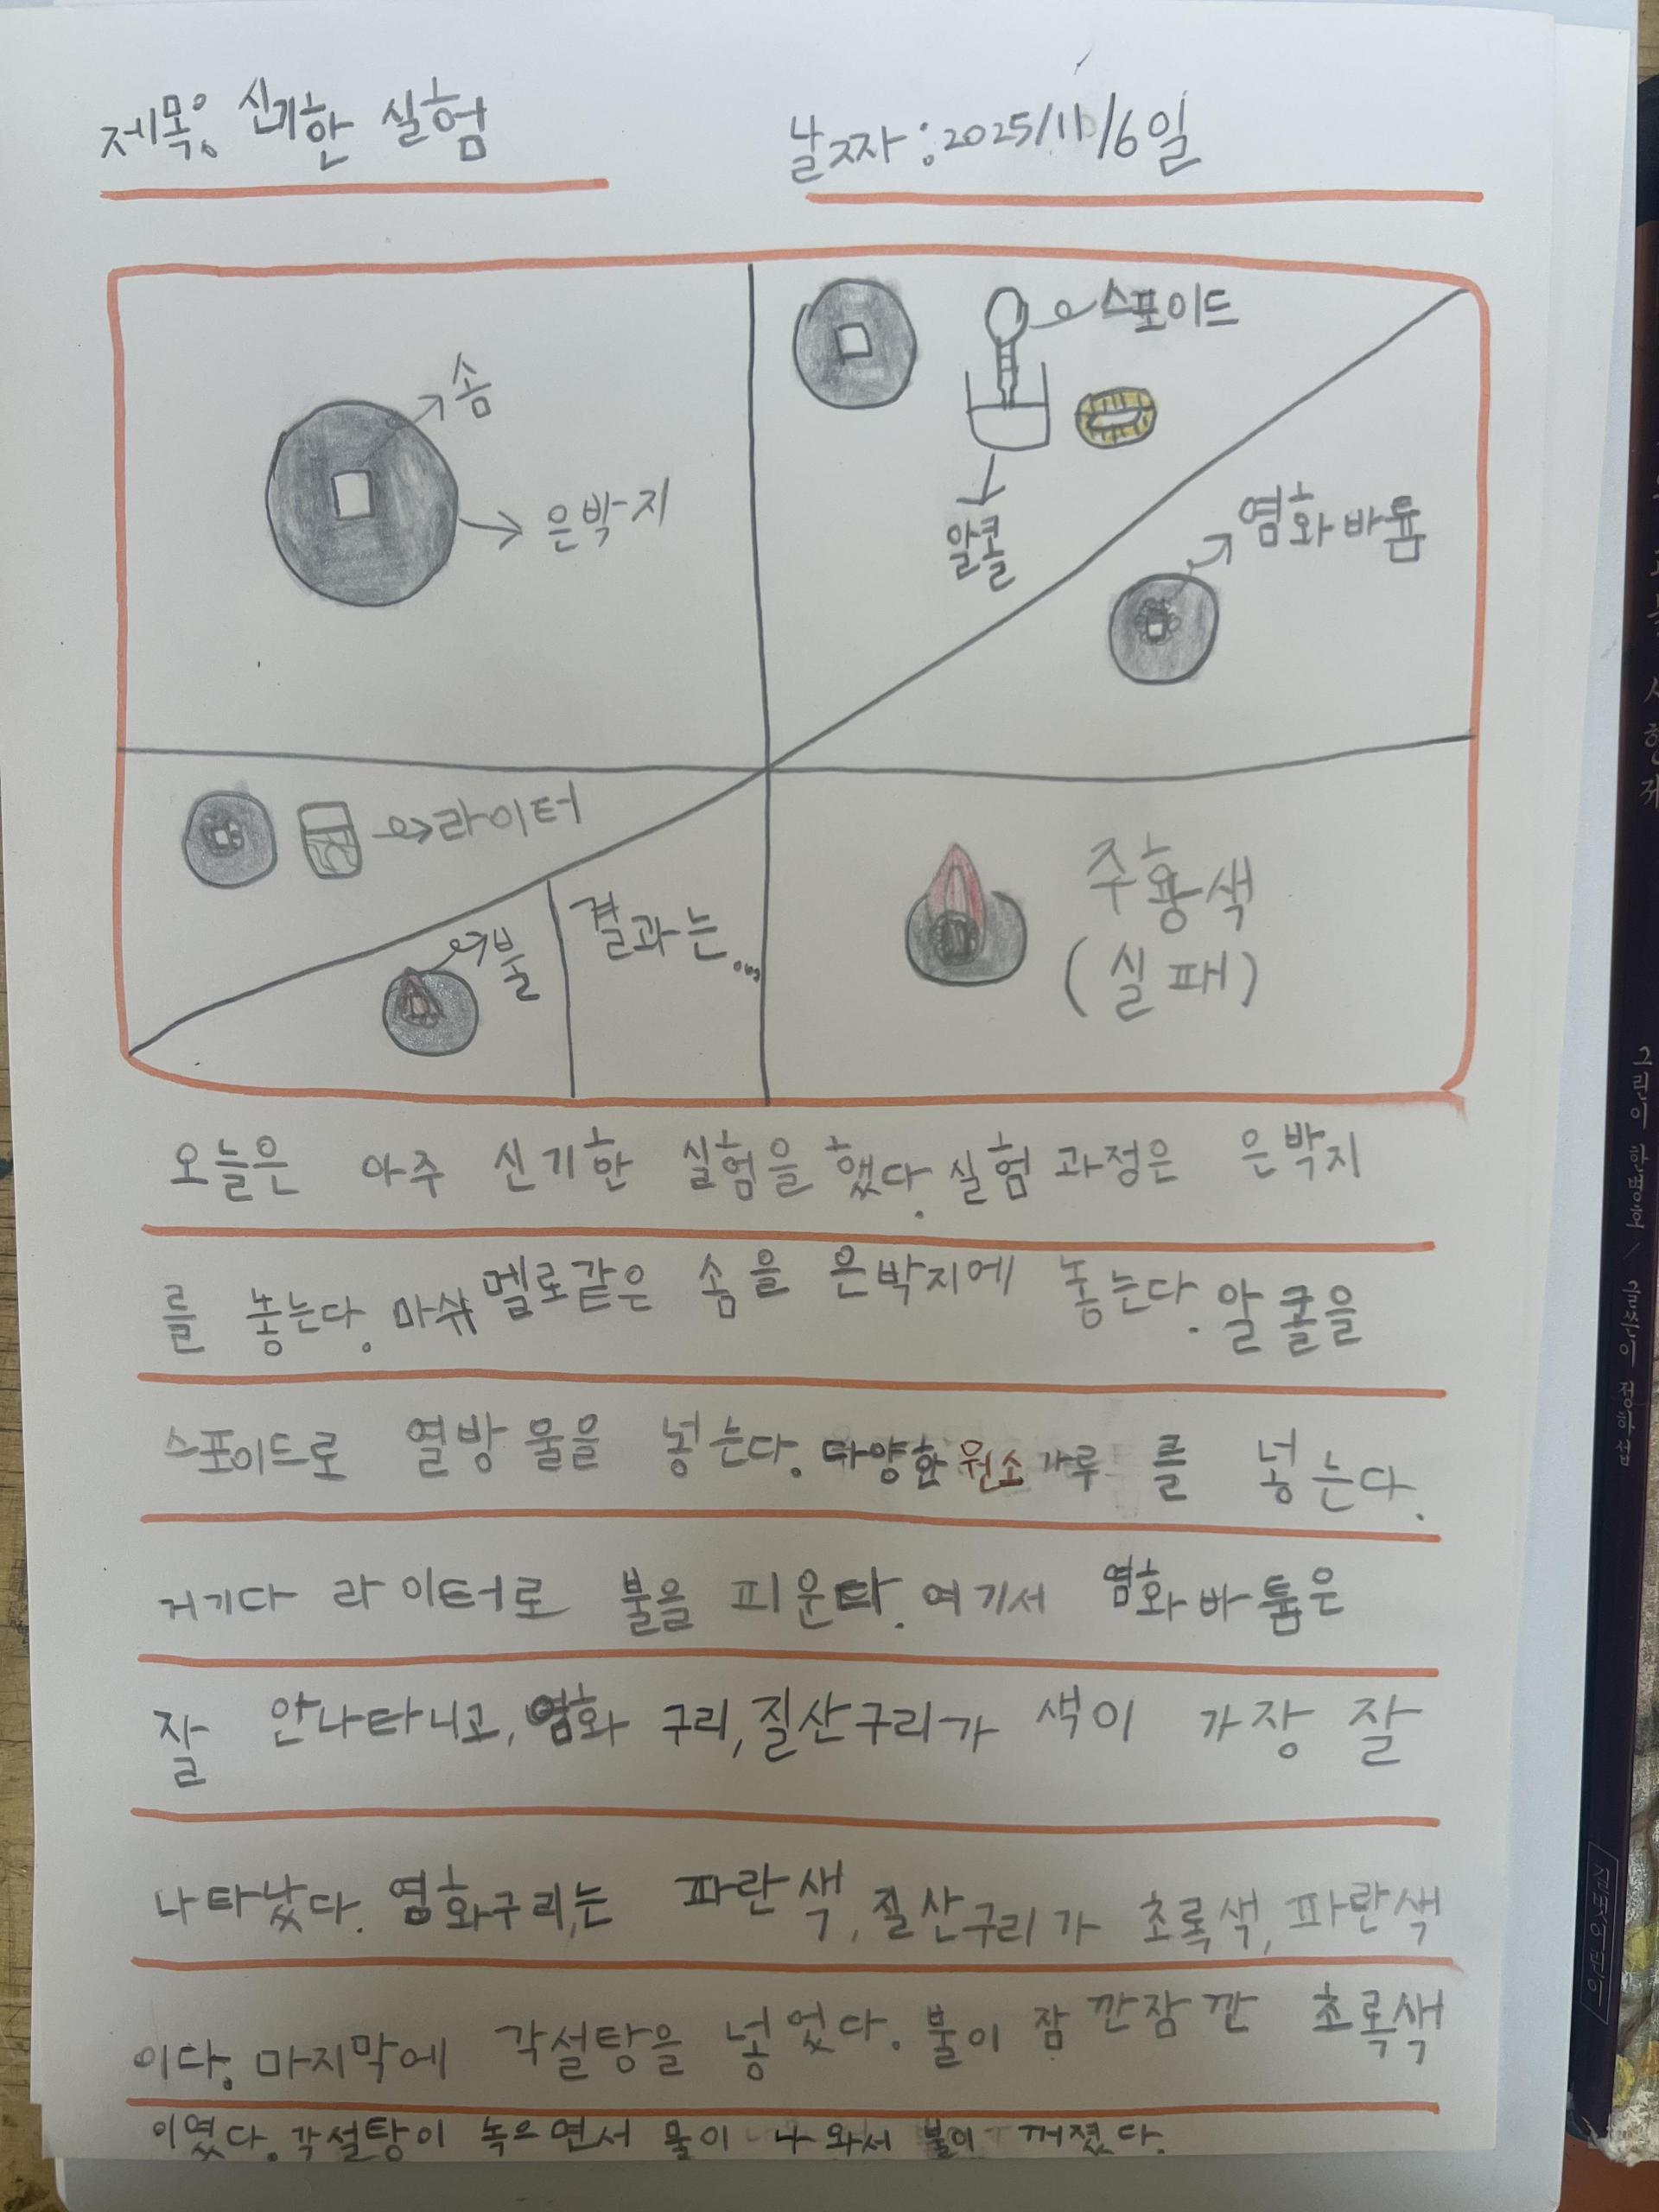 제목: 신기한 실험
날짜자: 2025/11/6일
솜
은박지
스포이드
알콜
염화바륨
라이터
불
결과는...
주황색
(실패)
오늘은 아주 신기한 실험을 했다. 실험 과정은 은박지
를 놓는다. 마쉬멜로같은 솜을 은박지에 놓는다. 알콜을
스포이드로 열방울을 넣는다. 다양한 원소가루를 넣는다.
거기다 라이터로 불을 피운다. 여기서 염화바륨은
잘 안나타니고, 염화구리, 질산구리가 색이 가장 잘
나타났다. 염화구리는 파란색, 질산구리가 초록색, 파란색
이다. 마지막에 각설탕을 넣었다. 불이 잠깐잠깐 초록색
이였다. 각설탕이 녹으면서 물이 나와서 불이 꺼졌다.
그린이 한병호 / 글쓴이 정하섭